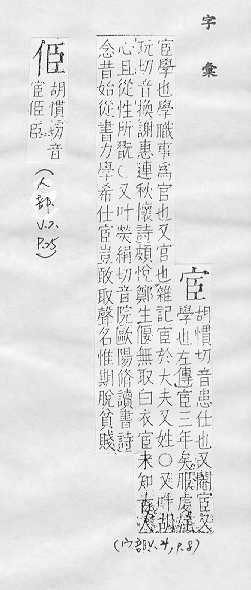 字彙
宦 胡慣切音患仕也又閹宦又
學也左傳宦三年矣服虔
宦學也學職事爲官也又官也雜記宦於大夫又姓○又叶胡
玩切音換謝惠連秋懷詩頗悅鄭生偃無取白衣宦未知古人
心且從性所翫○又叶熒絹切音院歐陽脩讀書詩
念昔始從書力學希仕宦豈敢取聲名惟期脫貧賤
(宀部V.4,P.8)
𠈻 胡慣切音
宦𠈻臣
(人部,V.2,P.25)